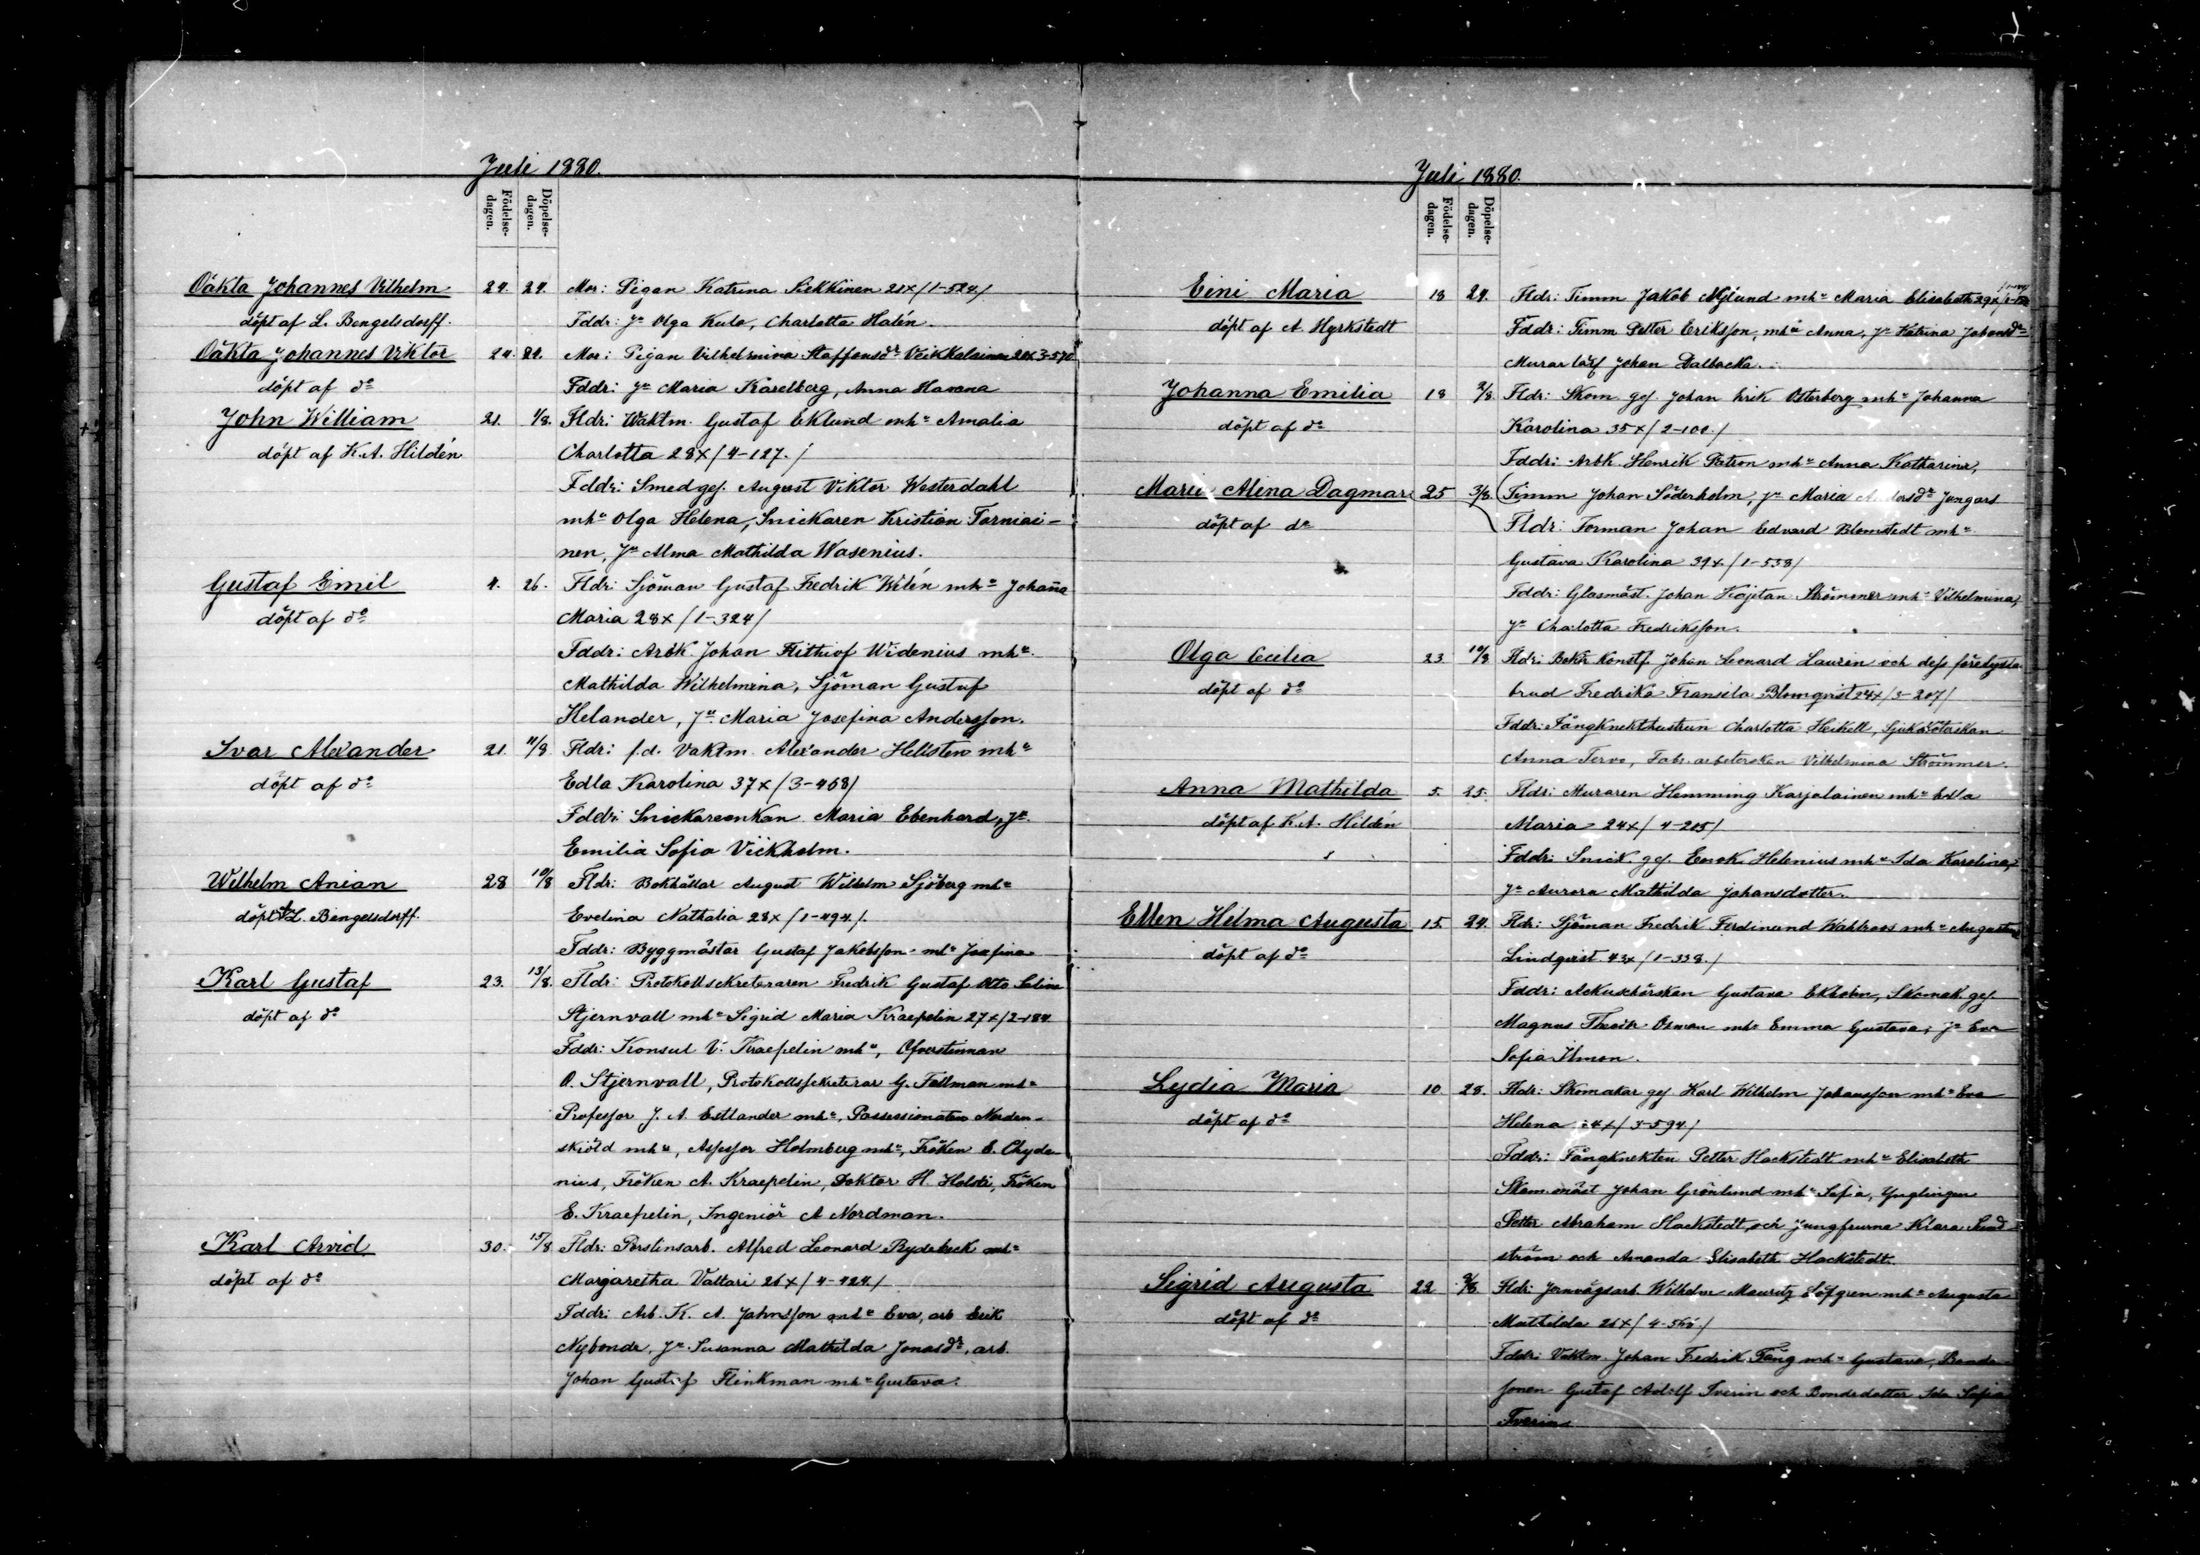 Juli 1880.
Födelse-
dagen.
Döpelse-
dagen.
Oäkta Johannes Vilhelm 24. 24. Mor: Pigan Katrina Sikkinen 21x/1-524/
döpt af L. Bengelsdorff. Fddr: Jn Olga Kulo, Charlotta Halén.
Oäkta Johannes Viktor 24. 24. Mor: Pigan Vilhelmina Staffansdr Voikkalainen 3-570
döpt af do Fddr: Jn Maria Kåselberg, Anna Havana
John William 21. 1/8. Fldr: Waktm. Gustaf Eklund mhu Amalia
döpt af K.A. Hildén Charlotta 28x/4-127./
Fddr: Smedges. August Viktor Westerdahl
mhu Olga Helena, Snickaren Kristian Torniai-
nen, Jn Alma Mathilda Wasenius.
Gustaf Emil 4. 26. Fldr: Sjöman Gustaf Fredrik Wilén mhu Johaña
döpt af do Maria 28x/1-324/
Fddr: Arbk. Johan Frithiof Widenius mhu
Mathilda Wilhelmina, Sjöman Gustaf
Helander, Jn Maria Josefina Andersson.
Ivar Alexander 21. 11/8 Fldr: f.d. Vaktm. Alexander Hellsten mhu
döpt af do Edla Karolina 37x/3-468/
Fddr: Snickareenkan Maria Ebenhard, Jn
Emilia Sofia Vickholm.
Wilhelm Anian 28 10/8 Fldr: Bokhållar August Wilhelm Sjöberg mhu
döpt af L. Bengelsdorff. Evelina Nathalia 28x/1-494/.
Fddr: Byggmästar Gustaf Jakobsson mhu Josefina
Karl Gustaf 23. 13/8. Fldr: Protokollsekreteraren Fredrik Gustaf Otto
döpt af do Stjernvall mhu Sigrid Maria Kraepelin 27x/2-184
Fddr: Konsul V. Kraepelin mhu, Öfverstinnan
O. Stjernvall, Protokollssekreterar G. Tallman mhu
Professor J. A. Estlander mhu, Possessionaten Norden-
skiöld mhu, Assessor Holmberg mhu, Fröken E. Chyde-
nius, Fröken A. Kraepelin, Doktor H. Holsti, Fröken
E. Kraepelin, Ingeniör A Nordman.
Karl Arvid 30. 15/8 Fldr: Porslinsarb. Alfred Leonard Rydebeck mhu
döpt af do Margaretha Valtari 26x/4-424/
Fddr: Arb. K. A. Jahnsson mhu Eva, arb Erik
Nybonde, Jn Susanna Mathilda Jonasdr, arb.
Johan Gustaf Flinkman mhu Gustava.
Juli 1880.
Födelse-
dagen.
Döpelse-
dagen.
Eini Maria 18 24. Fldr: Timm Jakob Nylund mhu Maria Elisabeth 29x/
döpt af A. Hyrkstedt Fddr: Timm Petter Eriksson, mhu Anna, Jn Katrina Johansdr
Murar lärl Johan Dalbacka.
Johanna Emilia 18 2/8. Fldr: Skom ges Johan Erik Österberg mhu Johanna
döpt af do Karolina 35x/2-100./
Fddr: Arbk. Henrik mhu Anna Katharina,
Maria Alina Dagmar 25 3/8. Timm Johan Söderholm, Jn Maria Andersdr Jungars
döpt af do Fldr: Forman Johan Edvard Blomstedt mhu
Gustava Karolina 39x/1-538/
Fddr: Glasmäst. Johan Kajetan Strömmer mhu Vilhelmina,
Jn Charlotta Fredriksson.
Olga Cecilia 23 10/8 Fldr: Johan Leonard Laurin och dess förelysta
döpt af do brud Fredrika Fransila Blomqvist 24x/3-207/
Fddr: Fångknekthustrun Charlotta Heikell, Sjuksköterskan
Anna Tervo, Fabr.arbeterskan Vilhelmina Strömmer.
Anna Mathilda 5. 25. Fldr: Muraren Hemming Karjalainen mhu Edla
döpt af K.A. Hildén Maria 24x/4-205/
Fddr: Snick. ges. Enok Helenius mhu Ida Karolina,
Jn Aurora Mathilda Johansdotter.
Ellen Hilma Augusta 15. 24. Fldr: Sjöman Fredrik Ferdinand Wahlroos mhu Augusta
döpt af do Lindqvist 43x/1-338./
Fddr: Ackuschörskan Gustava Ekholm, Skomak. ges.
Magnus Öhman mhu Emma Gustava, Jn Eva
Sofia Ilmon.
Lydia Maria 10 28. Fldr: Skomakar ges Karl Wilhelm Johansson mhu Eva
döpt af do Helena 24x/3-594/
Fddr: Fångknekten Petter Hackstedt mhu Elisabeth
Skom.mäst Johan Grönlund mhu Sofia, Ynglingen
Petter Abraham Hackstedt, och jungfrurna Klara Sund-
ström och Amanda Elisabeth Hackstedt.
Sigrid Augusta 22 2/8. Fldr: Jernvägsarb. Wilhelm Mauritz Löfgren mhu Augusta
döpt af do Mathilda 26x/4-560./
Fddr: Vaktm. Johan Fredrik Fäng mhu Gustava, Bonde
sonen Gustaf Adolf Tverin och Bondedotter Ida Sofia
Tverin